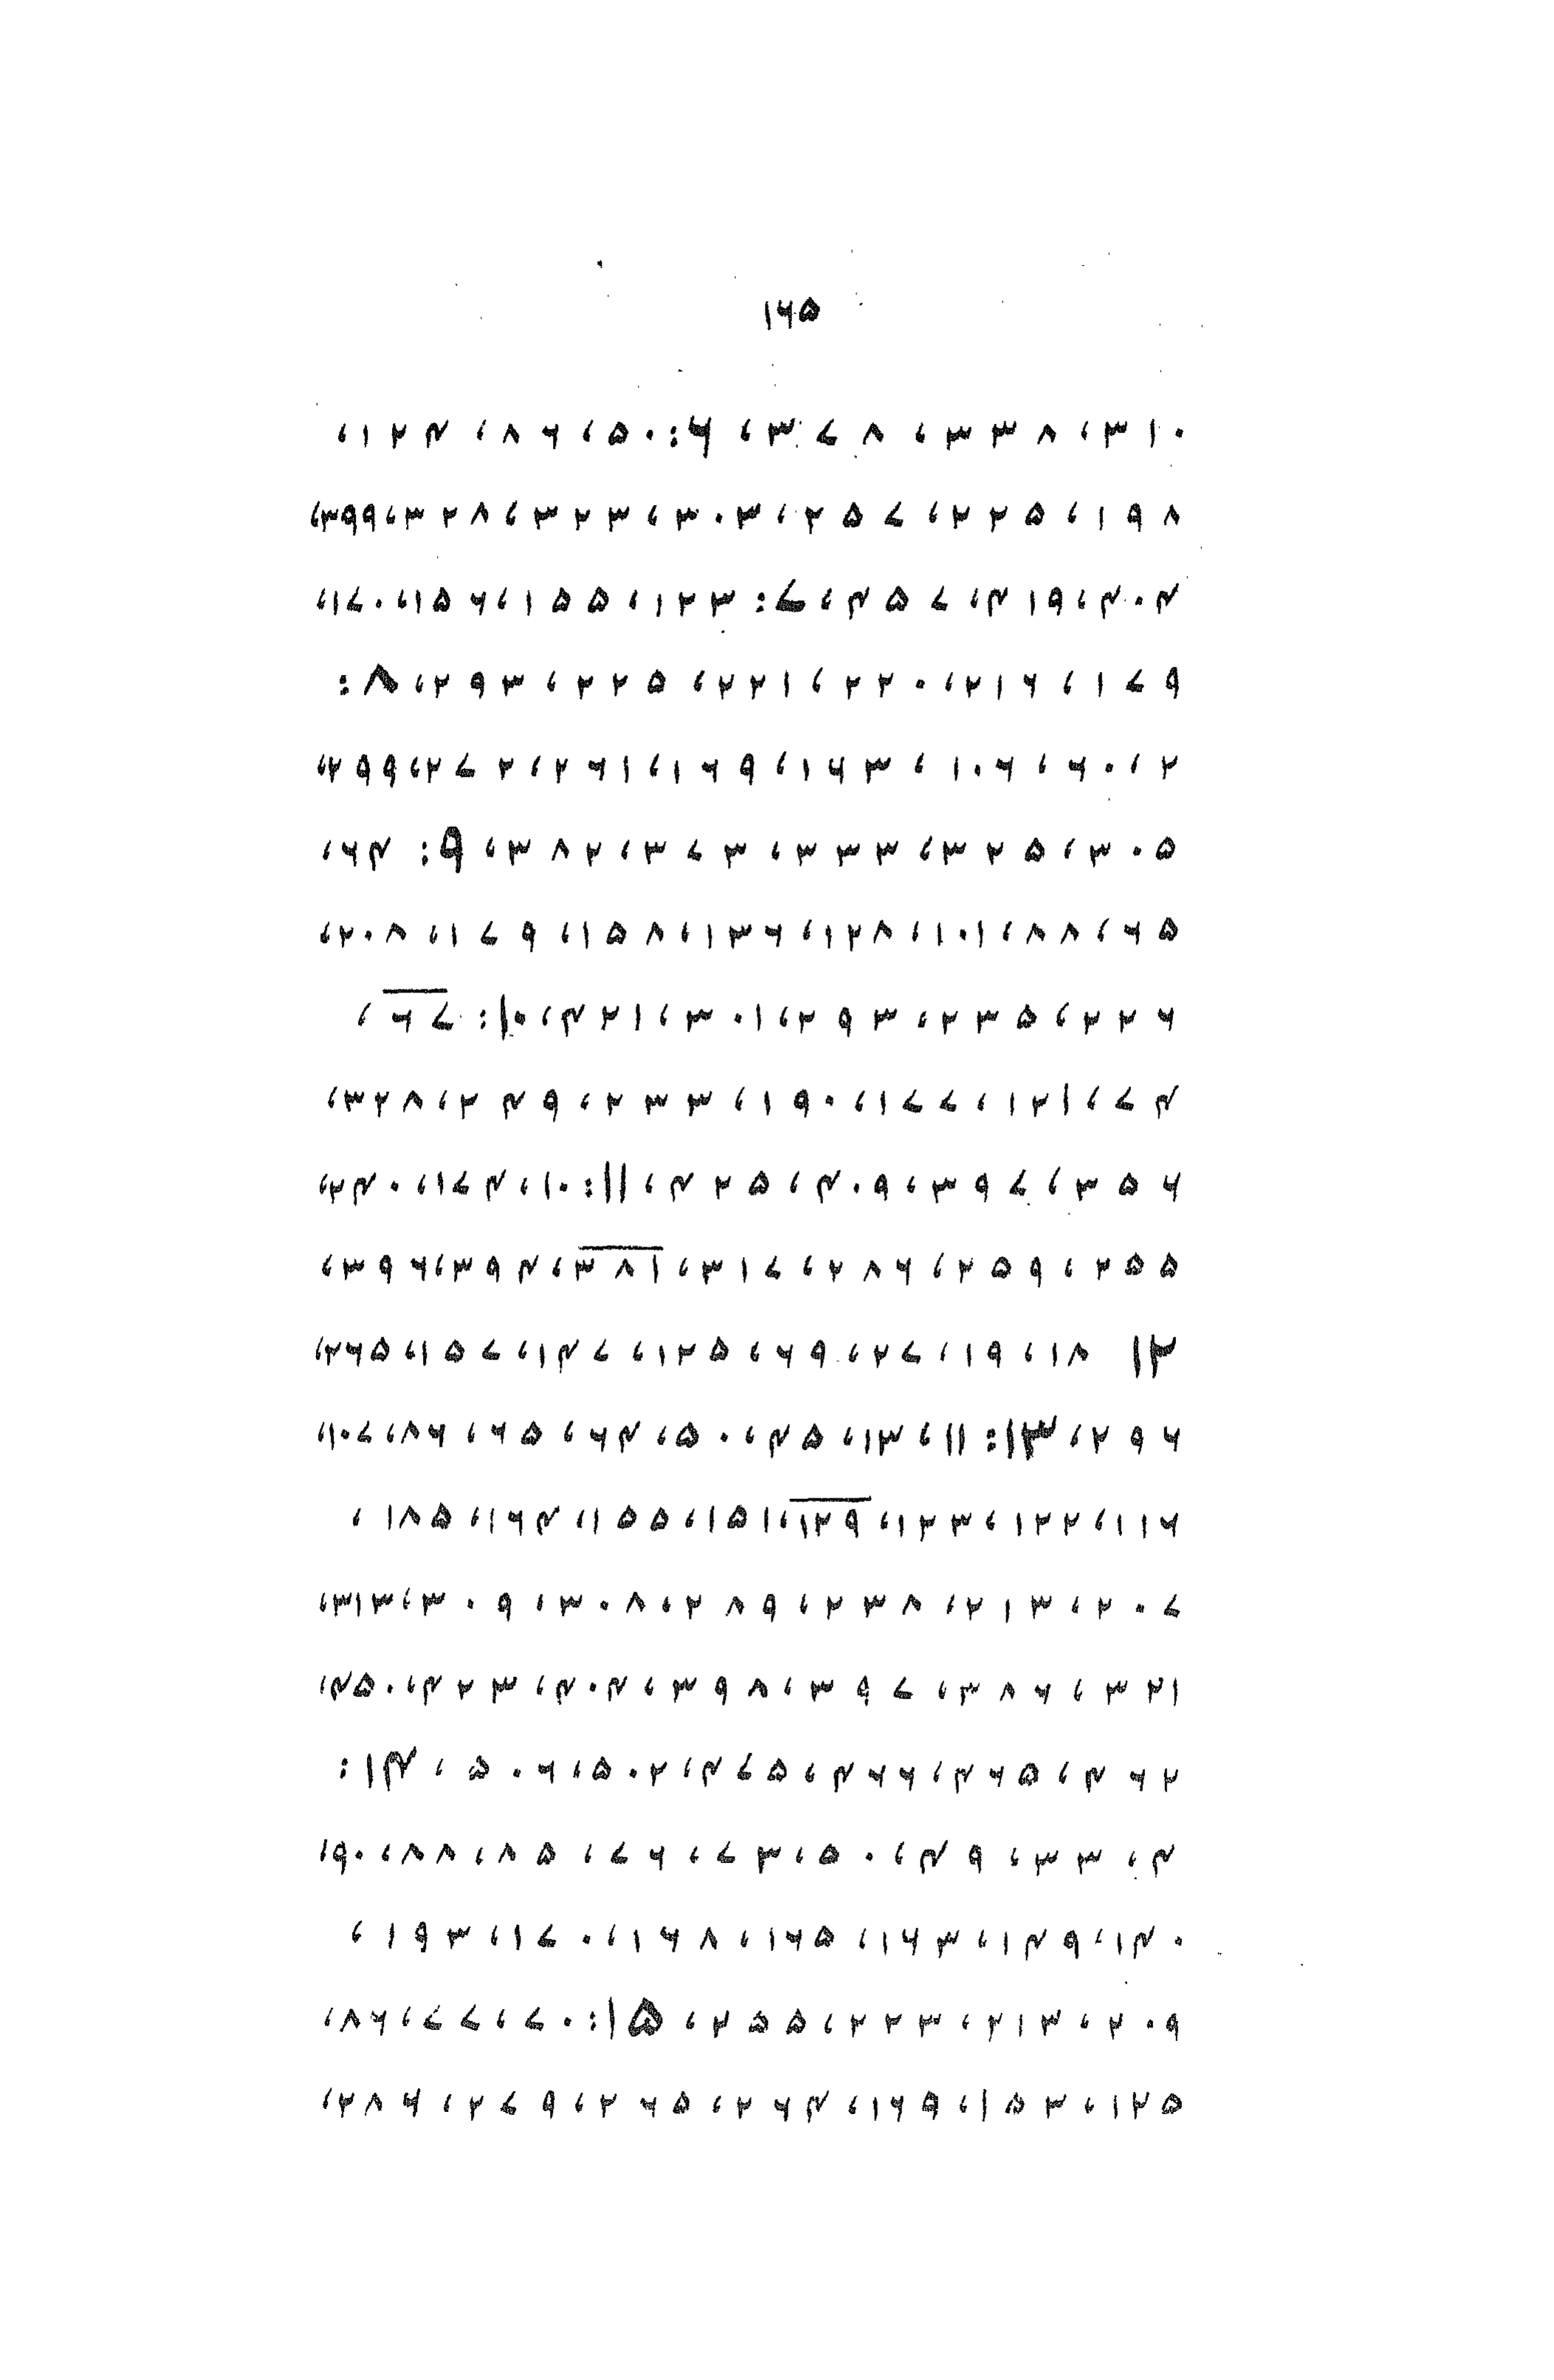 ۱۶۵
۳۱۰، ۳۳۸، ۳۷۸، ۶: ۵۰، ۸۶، ۱۲۴،
۱۹۸، ۲۲۵، ۲۵۷، ۳۰۳، ۳۲۳، ۳۲۸، ۳۹۹،
۴۰۴، ۴۱۹، ۴۵۷، ۷: ۱۲۳، ۱۵۵، ۱۵۶، ۱۷۰،
۱۷۹، ۲۱۶، ۲۲۰، ۲۲۱، ۲۲۵، ۲۹۳، ۸:
۲، ۶۰، ۱۰۶، ۱۶۳، ۱۶۹، ۲۶۱، ۲۷۲، ۲۹۹،
۳۰۵، ۳۲۵، ۳۳۳، ۳۷۳، ۳۸۲، ۹: ۶۴،
۶۵، ۸۸، ۱۰۱، ۱۲۸، ۱۳۶، ۱۵۸، ۱۷۹، ۲۰۸،
۲۲۶، ۲۳۵، ۲۹۳، ۳۰۱، ۴۲۱، ۱۰: ۶۷،
۷۴، ۱۲۱، ۱۷۷، ۱۹۰، ۲۳۳، ۲۴۹، ۳۲۸،
۳۵۶، ۳۹۷، ۴۰۹، ۴۲۵، ۱۱: ۱۰، ۱۷۴، ۲۴۰،
۲۵۵، ۲۵۹، ۲۸۶، ۳۱۷، ۳۸۱، ۳۹۴، ۳۹۶،
۱۲ ۱۸، ۱۹، ۲۷، ۶۹، ۱۲۵، ۱۴۷، ۱۵۷، ۲۶۵،
۲۹۶، ۱۳: ۱۱، ۱۳، ۴۵، ۵۰، ۶۴، ۶۵، ۸۶، ۱۰۷،
۱۱۶، ۱۲۲، ۱۲۳، ۱۲۹، ۱۵۱، ۱۵۵، ۱۶۴، ۱۸۵،
۲۰۷، ۲۱۳، ۲۳۸، ۲۸۹، ۳۰۸، ۳۰۹، ۳۱۳،
۳۲۱، ۳۸۶، ۳۹۷، ۳۹۸، ۴۰۴، ۴۲۳، ۴۵۰،
۴۶۲، ۴۶۵، ۴۶۶، ۴۷۵، ۵۰۲، ۵۰۶، ۱۴:
۴، ۳۳، ۴۹، ۵۰، ۷۳، ۷۶، ۸۵، ۸۸، ۹۰،
۱۴۰، ۱۴۹، ۱۶۳، ۱۶۵، ۱۶۸، ۱۷۰، ۱۹۳،
۲۰۹، ۲۱۳، ۲۲۳، ۲۵۵، ۱۵: ۷۰، ۷۷، ۸۶،
۱۲۵، ۱۵۳، ۱۶۹، ۲۶۴، ۲۶۵، ۲۷۹، ۲۸۶،